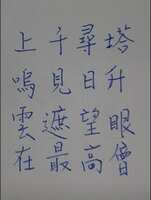 上千尋塔
鳴見日升
雲遮望眼
在最高層